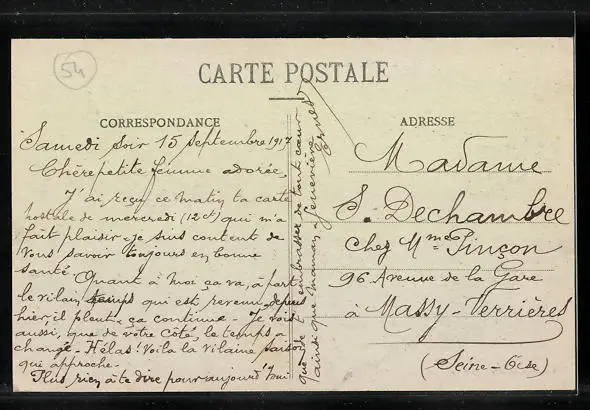 54
CARTE POSTALE
CORRESPONDANCE
Samedi soir 15 Septembre 1917
Chère petite femme adorée,
J'ai reçu ce matin ta carte
postale de mercredi (12 ct) qui m'a
fait plaisir - je suis content de
vous savoir toujours en bonne
santé.
Quant à moi ça va, à part
le vilain temps qui est revenu, depuis
hier, il pleut - ça continue - Je vois
aussi, que de votre côté, le temps a
changé - Hélas! Voila la vilaine saison
qui approche -
Plus rien à te dire pour aujourd'hui
que de t'embrasser de tout cœur
ainsi que Maman - Geneviève
Ernest
ADRESSE
Madame
S. Dechambre
Chez Mme Pinçon
96 Avenue de la Gare
à Massy-Verrières
(Seine-&-Oise)